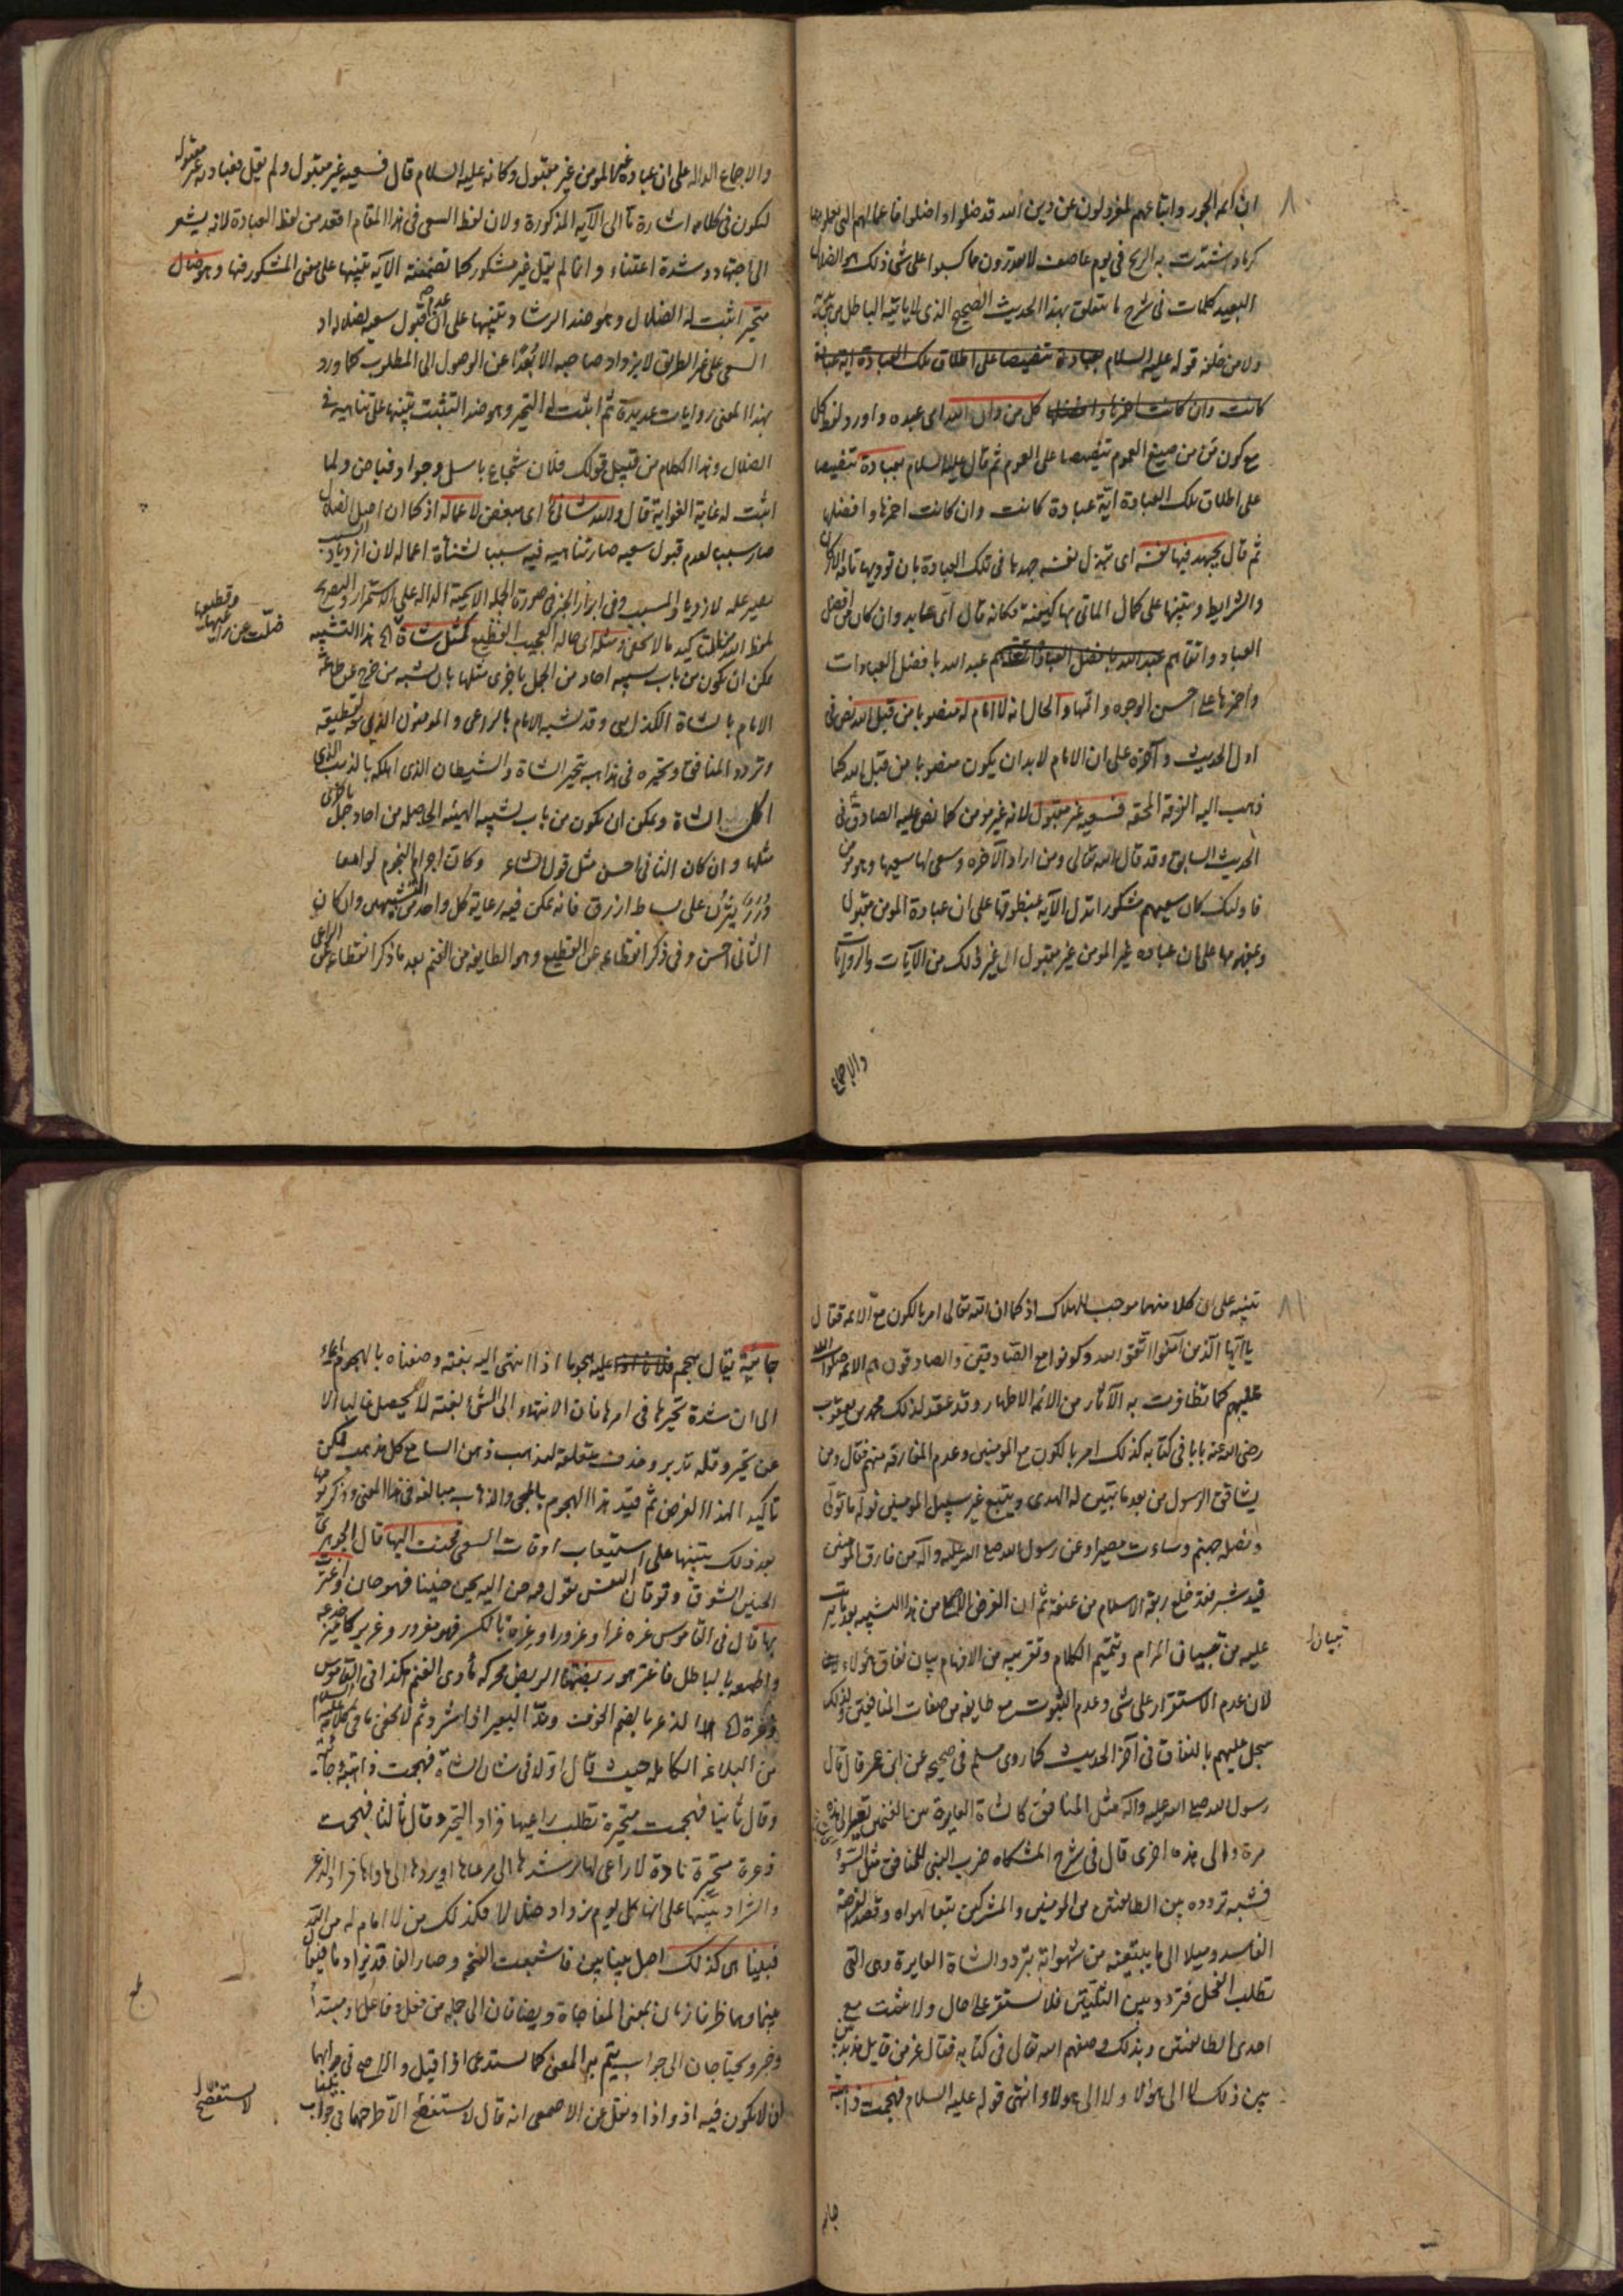 ٨٠
ان ائمه الجور واتباعهم لمعزولون عن دين الله قد ضلوا واضلوا فاعمالهم التى يعملونها
كرماد اشتدت به الريح فى يوم عاصف لا يقدرون مما كسبوا على شئ ذلك هو الضلال
البعيد كلمات فى شرح ما يتعلق بهذا الحديث الصحيح الذى لا ياتيه الباطل من بين يديه
ولا من خلفه قوله عليه السلام بعبادة تنصيصا على اطلاق تلك العبادة اية عبادة
كانت وان كانت احمزها وافضلها كل من دان الله اى عبده واورد لفظ كل
مع كون من من صيغ العموم تنصيصا على العموم ثم قال عليه السلام بعبادة تنصيصا
على اطلاق تلك العبادة اية عبادة كانت وان كانت احمزها وافضلها
ثم قال يجهد فيها نفسه اى تبذل نفسه جهدها فى تلك العبادة بان توديها تامة الاركان
والشرايط وتنبيها على كمال الماتى بها كيفية فكانه قال اى عابد وان كان من افضل
العباد واتقاهم عبد الله بافضل العبادات
واحمزها على احسن الوجوه واتمها والحال انه لا امام له منصوبا من قبل الله نص فى
اول الحديث وآخره على ان الامام لابد ان يكون منصوبا من قبل الله كما
ذهب اليه الفرقة المحقه فسعيه غير مقبول لانه غير مومن كما نص عليه الصادق فى
الحديث السابق وقد قال الله تعالى ومن اراد الآخره وسعى لها سعيها وهو مومن
فاولئك كان سعيهم مشكورا تدل الآيه بمنطوقها على ان عبادة المومن مقبولة
وبمفهومها على ان عبادة غير المومن غير مقبول الى غير ذلك من الآيات والروايات
والاجماع
والاجماع الداله على ان عبادة غير المومن غير مقبول وكانه عليه السلام قال فسعيه غير مقبول ولم يقل فعبادته غير مقبولة
ليكون فى كلامه اشارة ما الى الآيه المذكورة ولان لفظ السعى فى هذا المقام اقعد من لفظ العبادة لانه يشعر
الى اجتهاد وشدة اعتناء وانما لم يقل غير مشكور كما تضمنته الآيه تنبيها على معنى المشكور فيها وهو ضال
متحير اثبت له الضلال وهو ضد الرشاد وتنبيها على ان عدم قبول سعيه لضلاله اذ
السعى على غير الطريق لا يزداد صاحبه الا بعدا عن الوصول الى المطلوب كما ورد
بهذا المعنى روايات عديدة ثم اثبت له التحير وهو ضد التثبت تنبيها على تناهيه فى
الضلال وهذا الكلام من قبيل قولك فلان شجاع باسل وجواد فياض ولما
اثبت له غاية الغواية قال والله شانئ اى مبغض لاعماله اذ كما ان اصل الضلال
صار سببا لعدم قبول سعيه صار تناهيه فيه سببا لشناة اعماله لان ازدياد السبب
يصير علة لازدياد المسبب وفى ابراز الخبر فى صورة الجملة الاسمية الدالة على الاستمرار والتصريح
بلفظ الله من التاكيد ما لا يخفى ومثله اى حاله العجيب الفظيع كمثل شاة الخ هذا التشبيه
يمكن ان يكون من باب تشبيه احاد من الجمل باخرى مثلها بان شبه من خرج عن طاعة
الامام بالشاة الكذايى وقد شبه الامام بالراعى والمومنون الذين معه بقطيعه
وتردد المنافق وتحيره فى مذاهبه بتحير الشاة والشيطان الذى اهلكه بالذئب الذى
اكل الشاة ويمكن ان يكون من باب تشبيه الهيئه الحاصله من احاد جمل باخرى
مثلها وان كان الثانى احسن مثل قول الشاعر وكان اجرام النجوم لوامعا
درر نثرن على بساط ازرق فانه يمكن فيه رعاية كل واحد من التشبيهين وان كان
الثانى احسن وفى ذكر انقطاعه عن القطيع وهو الطايفه من الغنم بعد ما ذكر انقطاعه عن الراعى
ضلت عن راعيها
وقطيعها
٨١
تنبيه على ان كلا منهما موجب للهلاك اذ كما ان الله تعالى امر بالكون مع الائمه فقال
يا ايها الذين آمنوا اتقوا الله وكونوا مع الصادقين والصادقون هم الائمه صلوات الله
عليهم كما تظافرت به الآثار من الائمه الاطهار وقد عقد لذلك محمد بن يعقوب
رضى الله عنه بابا فى كتابه كذلك امر بالكون مع المومنين وعدم المفارقه منهم فقال ومن
يشاقق الرسول من بعد ما تبين له الهدى ويتبع غير سبيل المومنين نوله ما تولى
ونصله جهنم وساءت مصيرا وعن رسول الله صلى الله عليه وآله من فارق المومنين
قيد شبر فقد خلع ربقة الاسلام من عنقه ثم ان الغرض الاصلى من هذا التشبيه بعد ما يترتب
عليه من تبيان المرام وتتميم الكلام وتقريبه من الافهام بيان نفاق هؤلاء
لان عدم الاستقرار على شئ وعدم الثبوت مع طايفه من صفات المنافقين ولذلك
سجل عليهم بالنفاق فى آخر الحديث كما روى مسلم فى صحيحه عن ابن عمر قال قال
رسول الله صلى الله عليه وآله مثل المنافق كالشاة العايرة بين الغنمين تعير الى هذه
مرة والى هذه اخرى قال فى شرح المشكاه ضرب النبى للمنافق مثل السوء
فشبه تردده بين الطايفتين من المومنين والمشركين تبعا لهواه وقصدا لغرضه
الفاسد وميلا الى ما يبتغيه من شهواته بتردد الشاة العايرة وهى التى
تطلب الفحل فتردد بين الثلتين فلا تستقر على حال ولا تثبت مع
احدى الطايفتين وبذلك وصفهم الله تعالى فى كتابه فقال عز من قايل مذبذبين
بين ذلك لا الى هؤلاء ولا الى هولاء انتهى قوله عليه السلام فهجمت ذاهبة
تبيان
جايه
جائية يقال هجم عليه هجوما اذا انتهى اليه بغته وصفناه بالهجوم ايماء
الى ان شدة تحيرها فى امرها فان الانتهاء الى الشئ بغتة لا يحصل غالبا الا
عن تحير وقلة تدبر وحذف متعلقه ليذهب ذهن السامع كل مذهب ممكن
تاكيدا لهذا الغرض ثم قيد هذا الهجوم بالمجئ والذهاب مبالغة فى هذا المعنى وذكر يومها
بعد ذلك تنبيها على استيعاب اوقات السعى فحنت اليها قال الجوهرى
الحنين الشوق وتوقان النفس تقول منه حن اليه يحن حنينا فهو حان واغترت
بها قال فى القاموس غره غرا وغرورا وغرة بالكسر فهو مغرور وغرير كامير خدعه
واطمعه بالباطل فاغتر هو ربضها الربض محركه ماوى الغنم كذا فى القاموس
ذعرة الخ الذعر بالضم الخوف وند البعير اى شرد ثم لا يخفى ما فى كلامه عليه السلام
من البلاغه الكامله حيث قال اولا فى شان الشاة فهجمت ذاهبة وجائية
وقال ثانيا فهجمت متحيرة تطلب راعيها فزاد التحير وقال ثالثا فهجمت
ذعرة متحيرة نادة لا راعى لها يرشدها الى مرعاها او يردها الى ماواها فزاد الذعر
والشراد تنبيها على انها كل يوم يزداد ضلالا فكذلك من لا امام له من الله
فبينا هى كذلك اصل بينا بين فاشبعت الفتحه وصار الفا قد يزاد ما فيقال
بينما وهما ظرفا زمان بمعنى المفاجاة ويضافان الى جملة من فعل وفاعل او مبتدا
وخبر ويحتاجان الى جواب يتم به المعنى كما يستدعى اذا قيل والافصح فى جوابهما
ان لا يكون فيه اذ واذا ونقل عن الاصمعى انه قال لا يستفصح الا طرحهما فى جواب
لا يستفصح